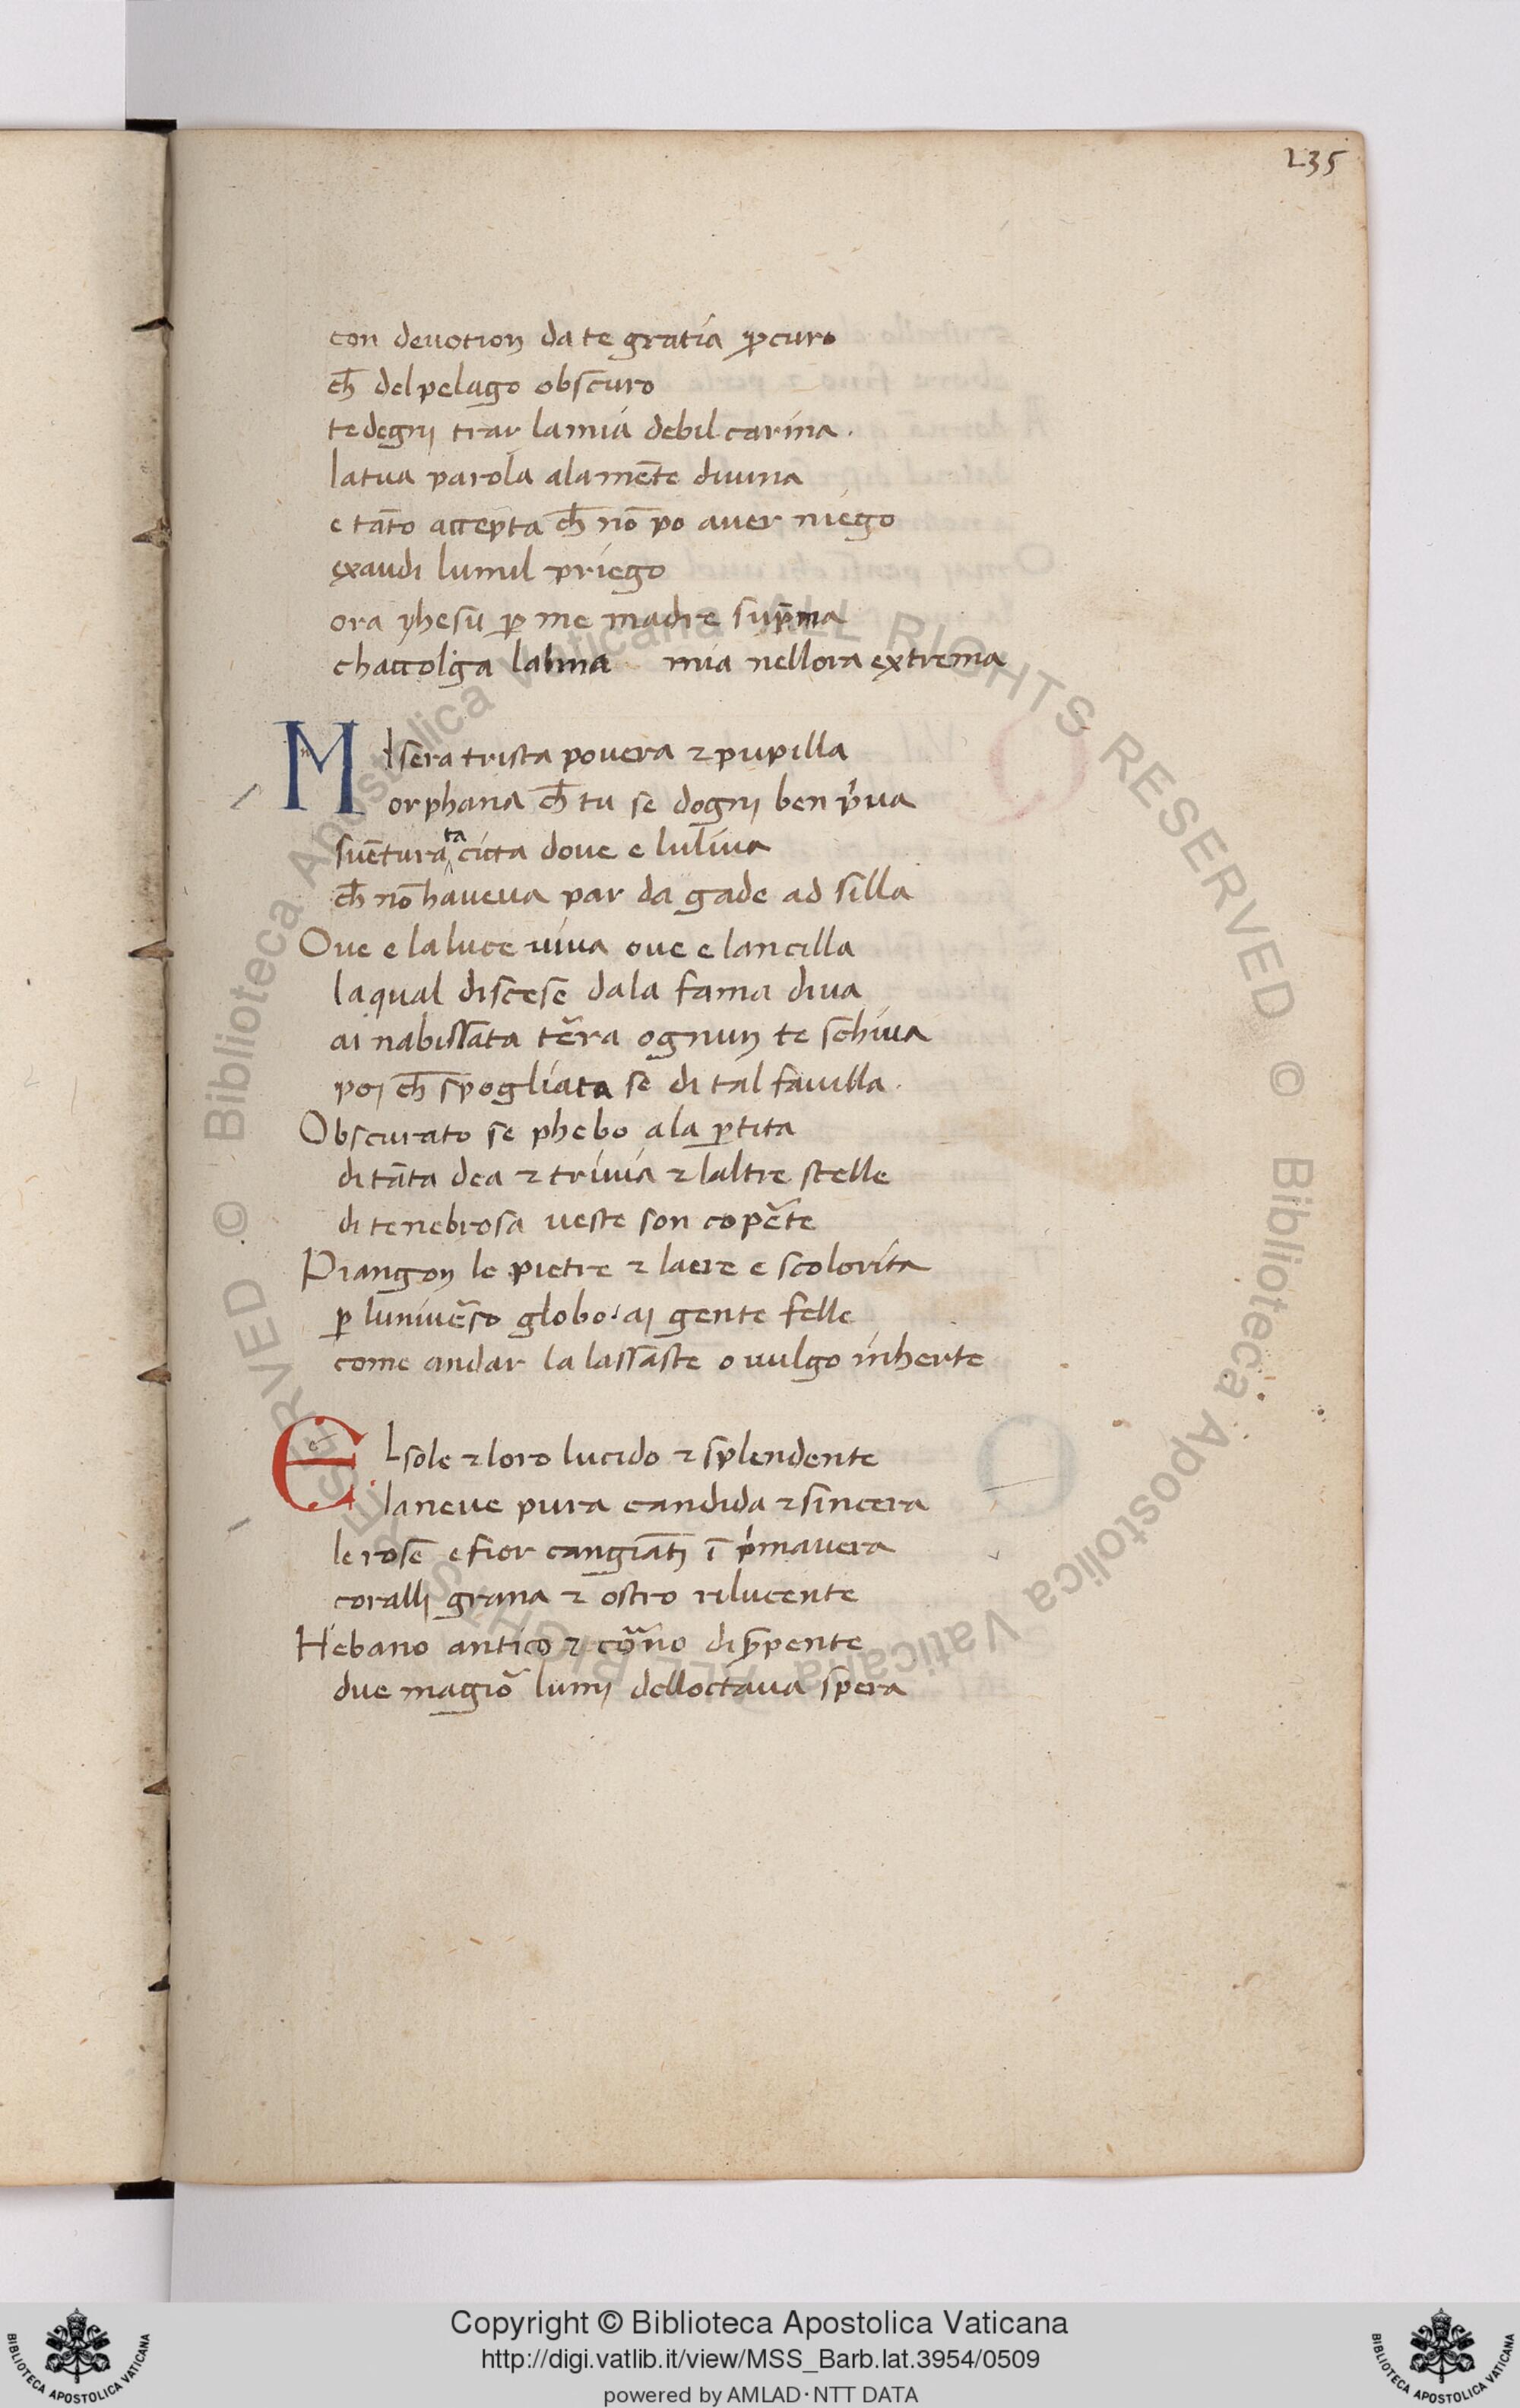 235
con deuotion da te gratia ꝓcuro
ch̄ del pelago obscuro
te degnj trar la mia debil carina.
la tua parola ala mēte diuina
e tāto accepta ch̄ nō po auer niego
exaudi lumil priego
ora yhesū ꝑ me madre sup̄ma
chaccolga lalma mia nellora extrema
MIsera trista pouera ⁊ pupilla
orphana ch̄ tu se dognj ben p̍ua
suētura^ta citta doue e luliua
ch̄ nō haueua par da gade ad silla
Oue e la luce uiua oue e lancilla
la qual discese dala fama diua
ai nabissata t̄ra ognun te schiua
poj ch̄ spogliata se di tal fauilla.
Obscurato se phebo ala ꝑtita
di tāta dea ⁊ triuia ⁊ laltre stelle
di tenebrosa ueste son copẽte
Piangon le pietre ⁊ laere e scolorita
ꝑ luniuẽso globo. aj gente felle
come andar la lassaste o uulgo inherte
EL sole ⁊ loro lucido ⁊ splendente
la neue pura candida ⁊ sincera
le rose e fior cangiātj ī p̍mauera
corallj grana ⁊ ostro rilucente
Hebano antico ⁊
due magiõ lumj delloctaua spera
Copyright © Biblioteca Apostolica Vaticana
http://digi.vatlib.it/view/MSS_Barb.lat.3954/0509
powered by AMLAD·NTT DATA
BIBLIOTECA APOSTOLICA VATICANA
BIBLIOTECA APOSTOLICA VATICANA
Biblioteca Apostolica Vaticana ALL RIGHTS RESERVED ©
Biblioteca Apostolica Vaticana ALL RIGHTS RESERVED ©